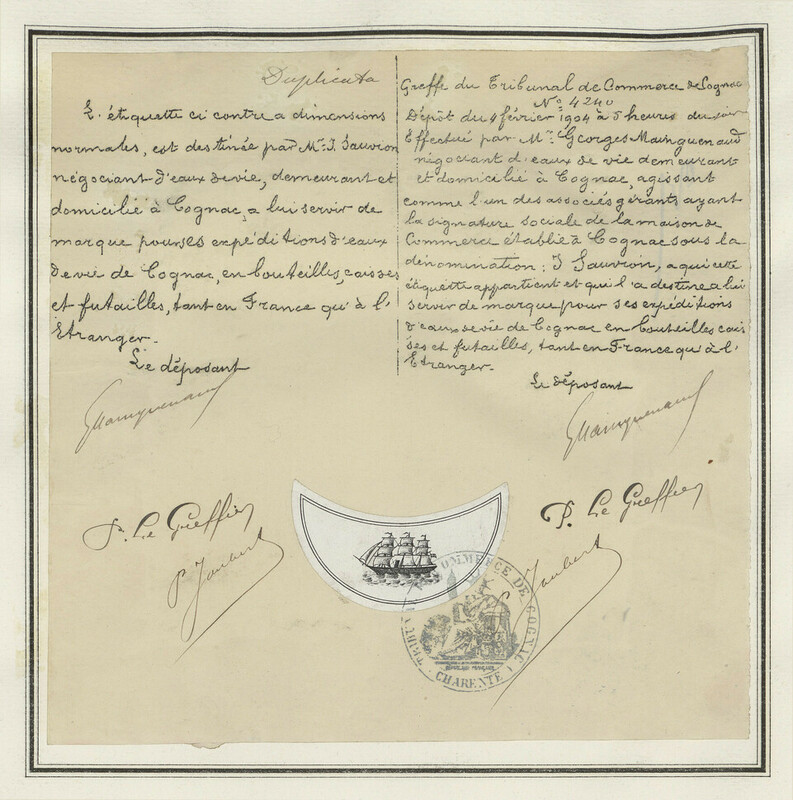 Duplicata
L'étiquette ci contre a dimensions
normales, est destinée par Mr. J. Sauvion
négociant d'eaux de vie, demeurant et
domicilié à Cognac, a lui servir de
marque pour ses expéditions d'eaux
de vie de Cognac, en bouteilles, caisses
et futailles, tant en France qu'à l'
Etranger.
Le déposant
GMainguenaud
P. Le Greffier
P Joubert
Greffe du Tribunal de Commerce de Cognac
No. 4240
Dépôt du 4 février 1904 à 5 heures du soir
Effectué par Mr. Georges Mainguenaud
négociant d'eaux de vie demeurant
et domicilié à Cognac, agissant
comme l'un des associés gérants ayant
la signature sociale de la maison de
Commerce établie à Cognac sous la
dénomination: J Sauvion, a qui cette
étiquette appartient et qui l'a destine a lui
servir de marque pour ses expéditions
d'eaux de vie de Cognac en bouteilles cais
ses et futailles, tant en France qu'à l'
Etranger.
Le déposant
GMainguenaud
P. Le Greffier
Joubert
TRIBUNAL DE COMMERCE DE COGNAC
REPUBLIQUE FRANÇAISE
CHARENTE